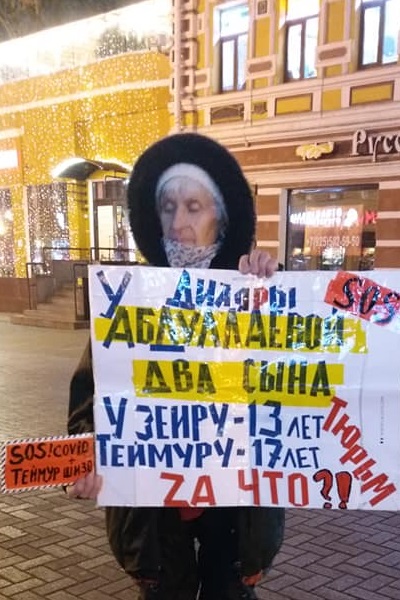 Русс
У ДИЛЯРЫ
SOS
АБДУЛЛАЕВОЙ
ДВА СЫНА
УЗЕИРУ-13 ЛЕТ
ТЕЙМУРУ-17 ЛЕТ
ТЮРЬМ
ZА ЧТО?!
SOS! COVID
+
ТЕЙМУР ШИЗО